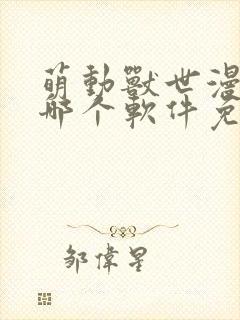 萌動獸世漫
哪个軟件免
邹偉星